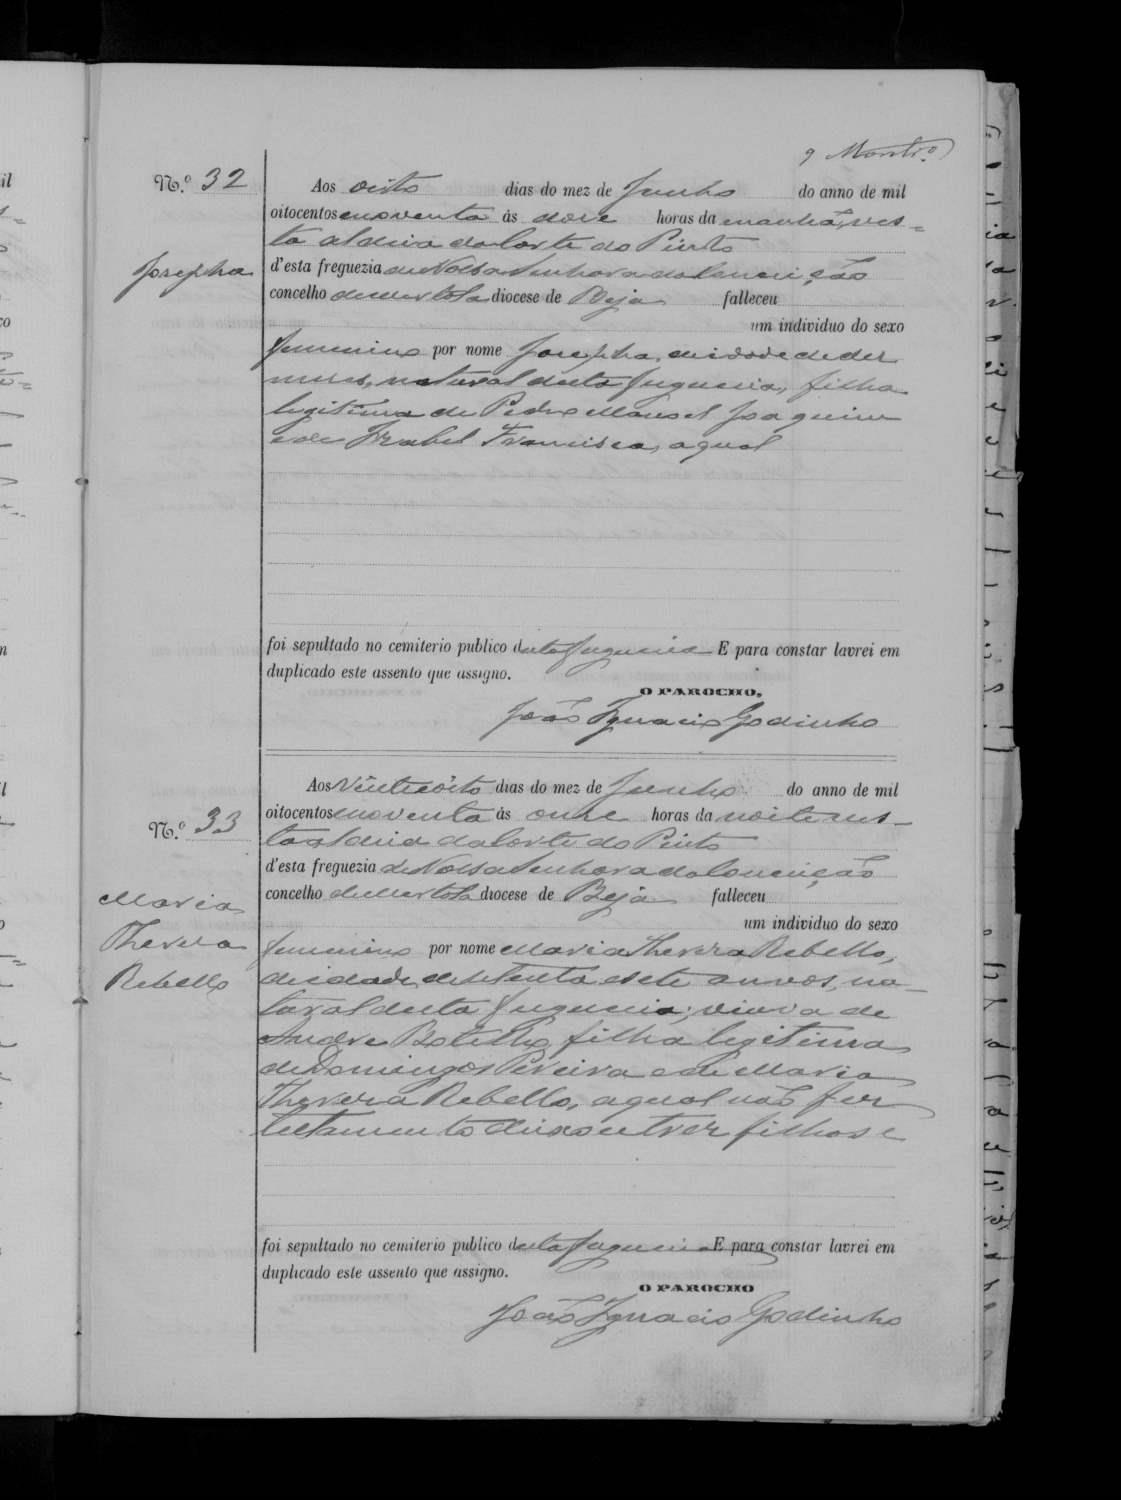 9
N.º 32
Josepha
Aos oito dias do mez de Junho do anno de mil
oitocentos e noventa ás doze horas da manhã, nes=
ta aldeia da Corte do Pinto
d'esta freguezia de Nossa Senhora da Conceição
concelho de Mertola diocese de Beja falleceu
um individuo do sexo
femenino por nome Josepha, de idade de dez
mezes, natural desta freguezia, filha
legitima de Pedro Manoel Joaquim
e de Izabel Francisca, a qual
foi sepultado no cemiterio publico desta freguezia E para constar lavrei em
duplicado este assento que assigno.
O PAROCHO,
João Ignacio Godinho
N.º 33
Maria
Thereza
Rebello
Aos Vinte e oito dias do mez de Junho do anno de mil
oitocentos e noventa ás onze horas da noite nes=
ta aldeia da Corte do Pinto
d'esta freguezia de Nossa Senhora da Conceição
concelho de Mertola diocese de Beja falleceu
um individuo do sexo
femenino por nome Maria Thereza Rebello,
de idade de setenta e sete annos, na=
tural desta freguezia, viuva de
Andre Botelho, filha legitima
de Domingos Pereira e de Maria
Thereza Rebello, a qual não fez
testamento deixou trez filhos e
foi sepultado no cemiterio publico desta freguezia E para constar lavrei em
duplicado este assento que assigno.
O PAROCHO
João Ignacio Godinho